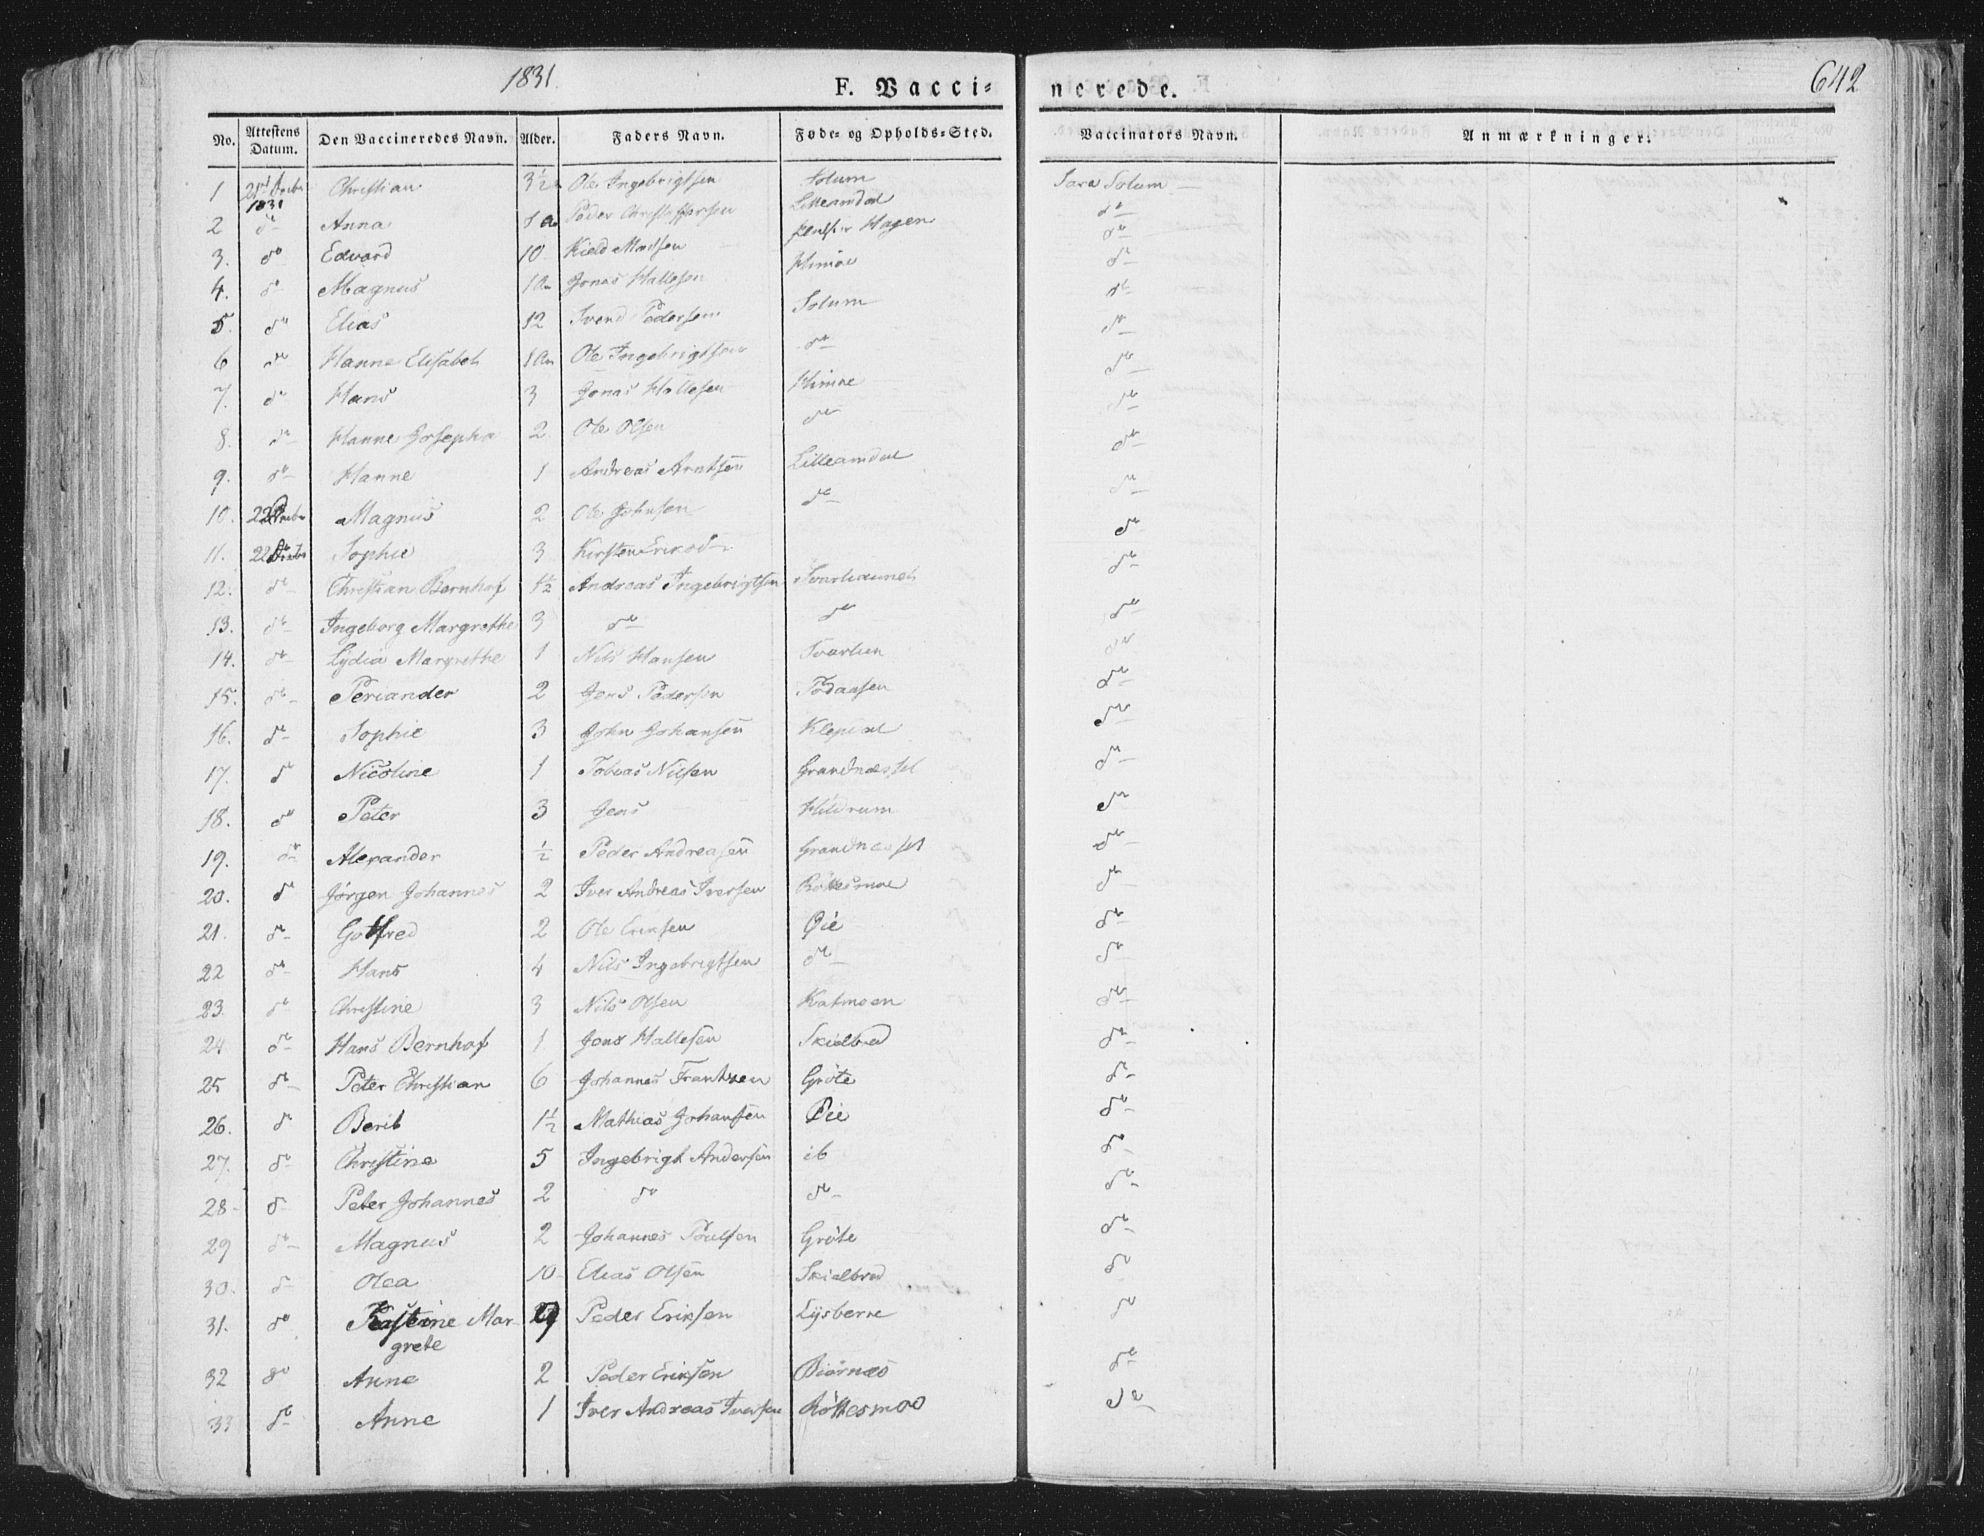 1831.
F. Vacci=
nerede.
642
No. Attestens Datum. Den Vaccineredes Navn. Alder. Faders Navn. Føde= og Opholds=Sted. Vaccinators Navn. Anmærkninger.
1 1831 Christian 3½ Ole Ingebrigtsen Solum Sara Solum
2 do Anna Peder Christoffersen Lilleamdal do
3. do Edvard 10 Kield Madsen Hagen do
4. do Magnus Jonas Hallesen Himoe do
5. do Elias 12 Svend Pedersen Solum do
6 do Hanne Elisabeth Ole Ingebrigtsen do do
7. do Hans 3 Jonas Hallesen Himoe do
8. do Hanne Josepha 2 Ole Olsen do do
9. do Hanne 1 Andreas Arntsen Lilleamdal do
10. Magnus 2 Ole Johnsen do do
11. Sophie 3 Kirsten do
12. do Christian Bernhof 1½ Andreas Ingebrigtsen do
13. do Ingeborg Margrethe 3 do do do
14. do Lydia Margrethe 1 Nils Hansen Svarlien do
15. do Periander 2 Jens Pedersen do
16. do Sophie 3 John Johansen do
17. do Nicoline 1 Tobias Nilsen Grandnæsset do
18. do Peter 3 Jens Hildrum do
19. do Alexander ½ Peder Andreasen Grandnæsset do
20. do Jörgen Johannes 2 Iver Andreas Iversen Röttesmoe do
21. do Gotfred 2 Ole Eriksen Öie do
22 do Hans 4 Nils Ingebrigtsen do do
23. do Christine 3 Nils Olsen Katmoen do
24 do Hans Bernhof 1 Jons Hallesen Skielbred do
25 do Peter Christian 6 Johannes Frantzen Gröte do
26. do Berit 1½ Mathias Johansen Öie do
27. do Christine 5 Ingebrigt Andersen ib do
28 do Peter Johannes 2 do do do
29 do Magnus 2 Johannes Poulsen Gröte do
30. do Olea 10 Elias Olsen Skielbred do
31. do Mar-
grete 9 Peder Eriksen do
32 do Anne 2 Peder Eriksen Biörnæs do
33 do Anne 1 Iver Andreas Iversen Röttesmoe do